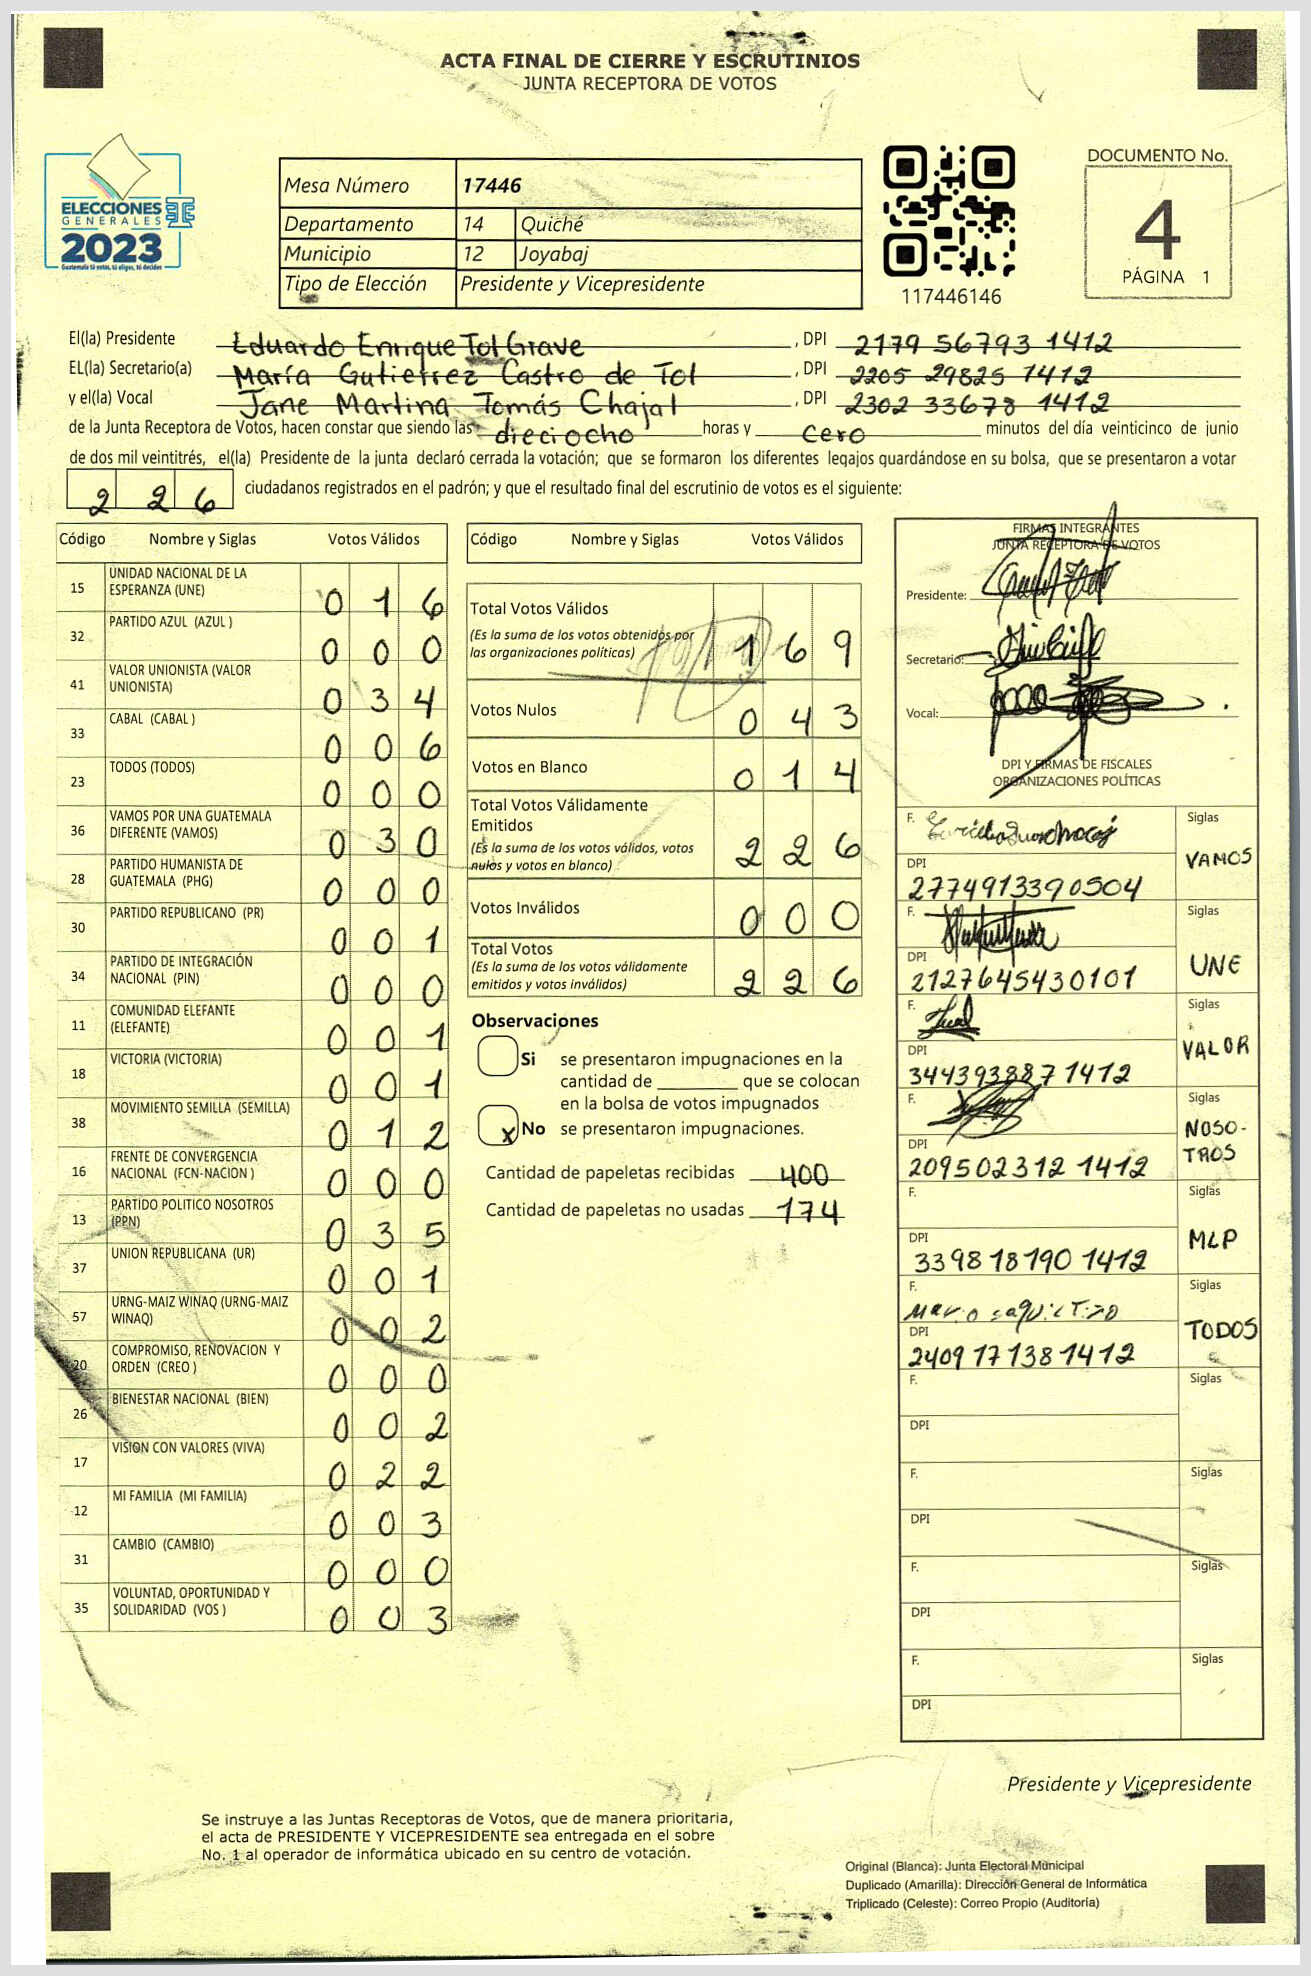 ACTA FINAL DE CIERRE Y ESCRUTINIOS
JUNTA RECEPTORA DE VOTOS
ELECCIONES
GENERALES
2023
Guatemala tú votas, tú eliges, tú decides
Mesa Número 17446
Departamento 14 Quiché
Municipio 12 Joyabaj
Tipo de Elección Presidente y Vicepresidente
117446146
DOCUMENTO No.
4
PÁGINA 1
El(la) Presidente Eduardo Enrique Tol Grave, DPI 2179 56793 1412
EL(la) Secretario(a) María Gutierrez Castro de Tol, DPI 2205 29825 1412
y el(la) Vocal Jane Martina Tomás Chajal, DPI 2302 33678 1412
de la Junta Receptora de Votos, hacen constar que siendo las dieciocho horas y cero minutos del día veinticinco de junio
de dos mil veintitrés, el(la) Presidente de la junta declaró cerrada la votación; que se formaron los diferentes legajos guardándose en su bolsa, que se presentaron a votar
226 ciudadanos registrados en el padrón; y que el resultado final del escrutinio de votos es el siguiente:
Código Nombre y Siglas Votos Válidos
15 UNIDAD NACIONAL DE LA ESPERANZA (UNE) 016
32 PARTIDO AZUL (AZUL ) 000
41 VALOR UNIONISTA (VALOR UNIONISTA) 034
33 CABAL (CABAL ) 006
23 TODOS (TODOS) 000
36 VAMOS POR UNA GUATEMALA DIFERENTE (VAMOS) 030
28 PARTIDO HUMANISTA DE GUATEMALA (PHG) 000
30 PARTIDO REPUBLICANO (PR) 001
34 PARTIDO DE INTEGRACIÓN NACIONAL (PIN) 000
11 COMUNIDAD ELEFANTE (ELEFANTE) 001
18 VICTORIA (VICTORIA) 001
38 MOVIMIENTO SEMILLA (SEMILLA) 012
16 FRENTE DE CONVERGENCIA NACIONAL (FCN-NACION ) 000
13 PARTIDO POLITICO NOSOTROS (PPN) 035
37 UNION REPUBLICANA (UR) 001
57 URNG-MAIZ WINAQ (URNG-MAIZ WINAQ) 002
20 COMPROMISO, RENOVACION Y ORDEN (CREO ) 000
26 BIENESTAR NACIONAL (BIEN) 002
17 VISION CON VALORES (VIVA) 022
12 MI FAMILIA (MI FAMILIA) 003
31 CAMBIO (CAMBIO) 000
35 VOLUNTAD, OPORTUNIDAD Y SOLIDARIDAD (VOS ) 003
Código Nombre y Siglas Votos Válidos
Total Votos Válidos 169
(Es la suma de los votos obtenidos por
las organizaciones políticas)
Votos Nulos 043
Votos en Blanco 014
Total Votos Válidamente
Emitidos 226
(Es la suma de los votos válidos, votos
nulos y votos en blanco)
Votos Inválidos 000
Total Votos 226
(Es la suma de los votos válidamente
emitidos y votos inválidos)
Observaciones
Si se presentaron impugnaciones en la
cantidad de ________ que se colocan
en la bolsa de votos impugnados
x No se presentaron impugnaciones.
Cantidad de papeletas recibidas 400
Cantidad de papeletas no usadas 174
FIRMAS INTEGRANTES
JUNTA RECEPTORA DE VOTOS
Presidente:
Secretario:
Vocal:
DPI Y FIRMAS DE FISCALES
ORGANIZACIONES POLÍTICAS
F. Siglas
VAMOS
DPI
2774913390504
F. Siglas
UNE
DPI
2127645430101
F. Siglas
VALOR
DPI
3443938871412
F. Siglas
NOSO-
TROS
DPI
209502312 1412
F. Siglas
MLP
DPI
339818190 1412
F. Siglas
TODOS
DPI
2409171381412
F. Siglas
DPI
F. Siglas
DPI
F. Siglas
DPI
F. Siglas
DPI
Presidente y Vicepresidente
Se instruye a las Juntas Receptoras de Votos, que de manera prioritaria,
el acta de PRESIDENTE Y VICEPRESIDENTE sea entregada en el sobre
No. 1 al operador de informática ubicado en su centro de votación.
Original (Blanca): Junta Electoral Municipal
Duplicado (Amarilla): Dirección General de Informática
Triplicado (Celeste): Correo Propio (Auditoría)